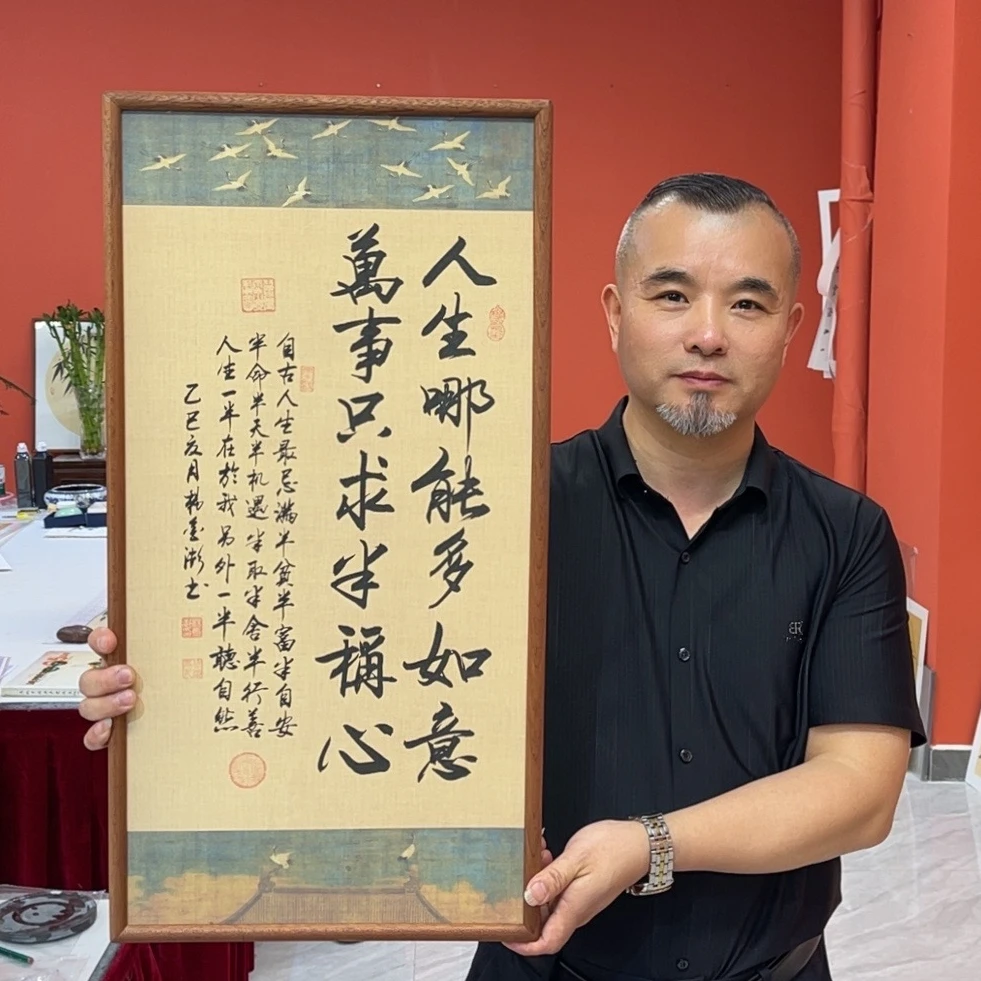 人生哪能多如意
萬事只求半稱心
自古人生最忌滿半貧半富半自安
半命半天半机遇半取半舍半行善
人生一半在於我另外一半聽自然
乙巳夏月楊墨漸书